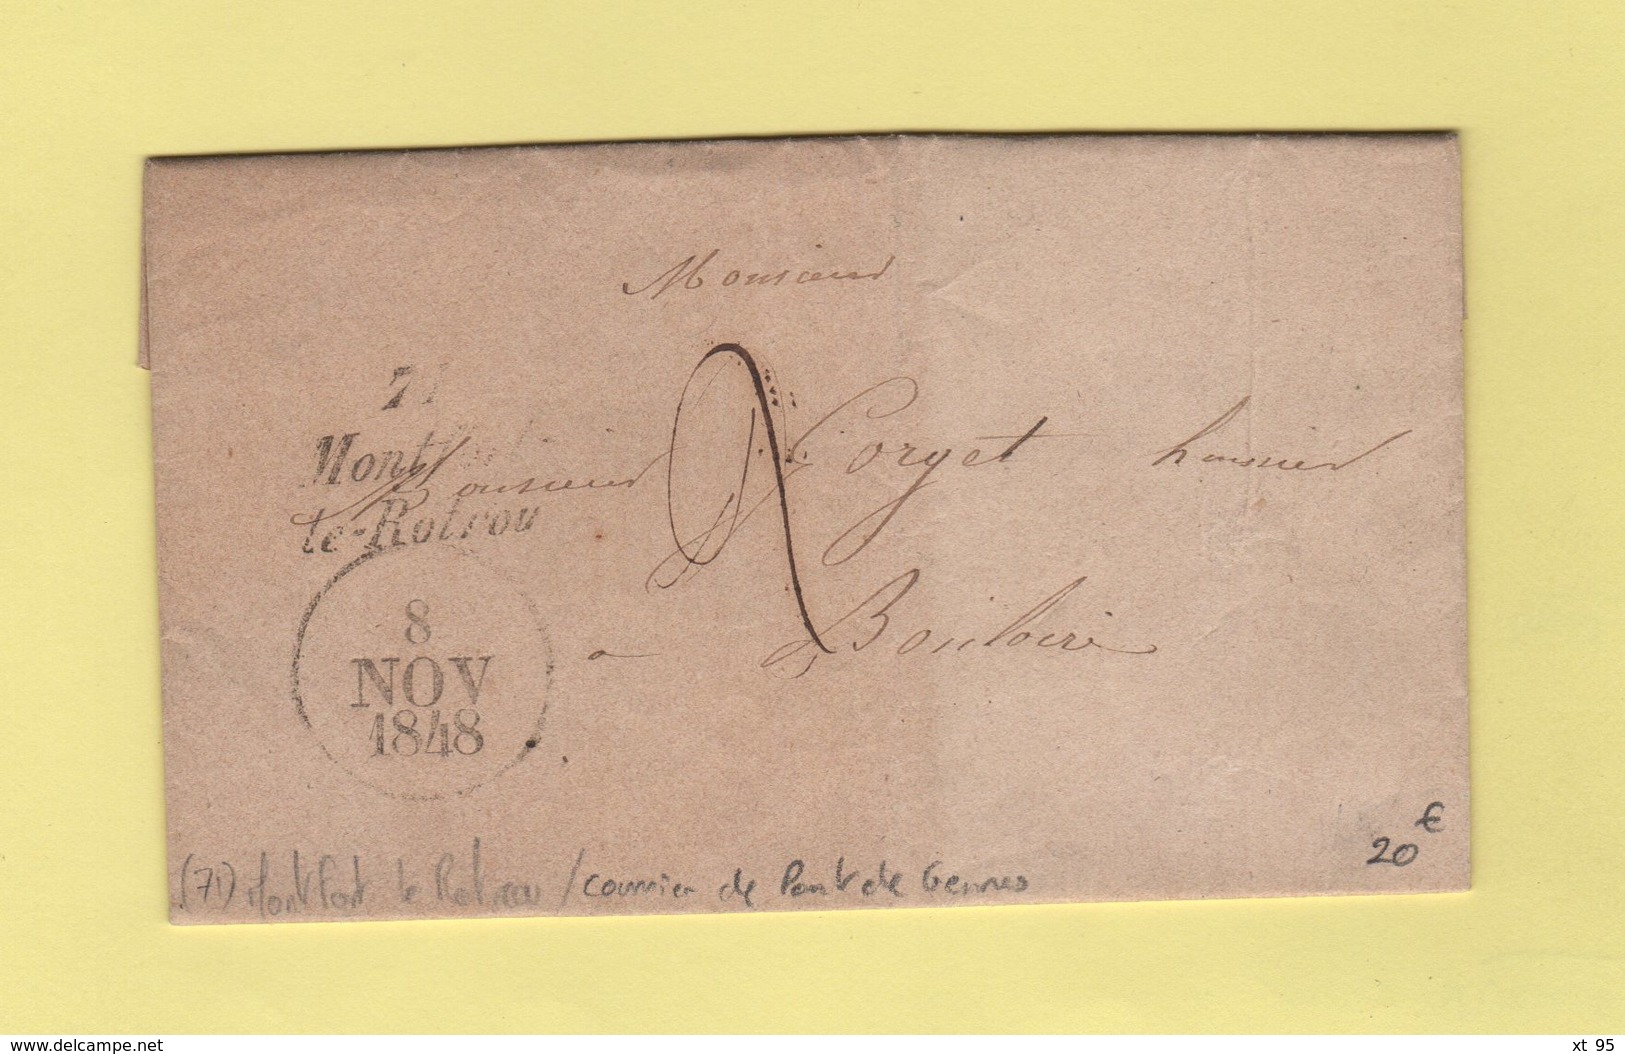 Monsieur
71
Montfort
le-Rotrou
Monsieur Forget huissier
a Bouloire
2
8
NOV
1848
€
20
(71) Montfort le Rotrou / courrier de Pont de Gennes
www.delcampe.net
xt 95